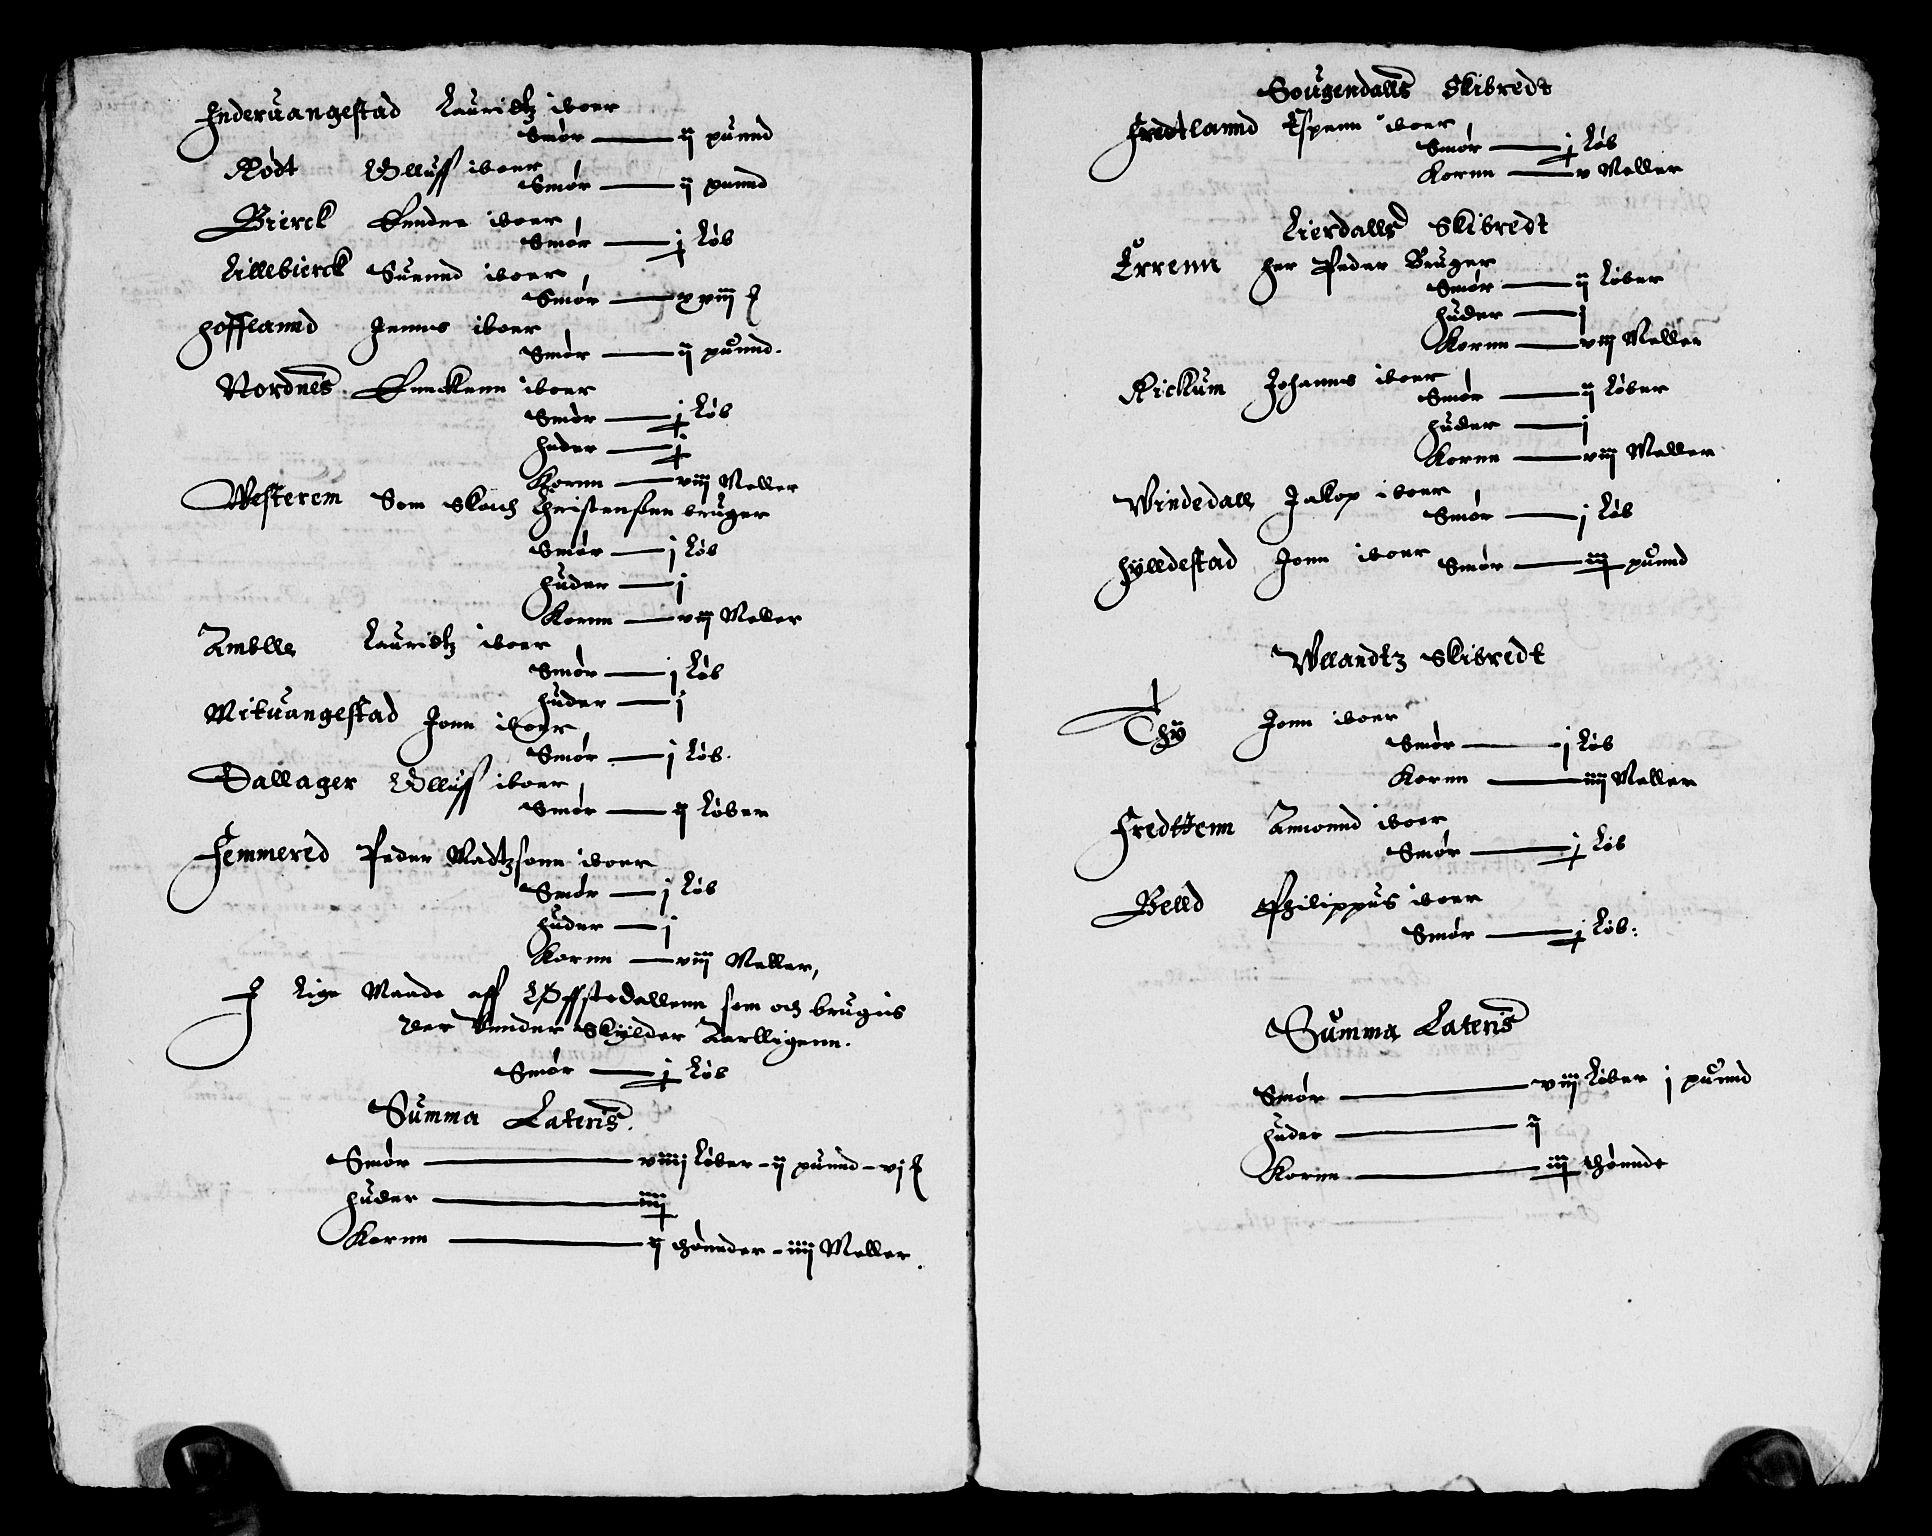 Inderuangestad Lauridtz iboer
Smør — ij puund
Rødt Olluff iboer
Smør — ij puund
Bierck Endre iboer
Smør — j Løb
Lillebierck Suennd iboer
Smør — xviij
Hofflannd Jenns iboer
Smør — ij puund.
Nordnes Enckenn iboer
Smør — j Løb
Huder — j
Kornn — viij Meller
Westerem Som Skouch Christensenn bruger
Smør — j Løb
Huder — j
Kornn — viij Meller
Amblle Lauridtz iboer
Smør — j Løb
Huder — j
Mituangestad Jonn iboer
Smør — j Løb.
Dallager Olluff iboer
Smør — ij Løber
Femmered Peder Madtzsonn iboer
Smør — j Løb
Huder — j
Kornn — viij Meller,
I Lige Maade aff Offstedallenn som och brugis
Vnder Skylder Aarlligenn.
Smør — j Løb
Summa Lateris.
Smør — viiij Løber - ij puund - vj
Huder — iiij
Kornn — ij thønnder - iiij Meller.
Sougendalls Skibredt
Fredtlannd Espenn iboer
Smør — j Løb
Kornn — v Meller
Lierdalls Skibredt
Errenn Her Peder Bruger
Smør — ij Løber
Huder — j
Kornn — viij Meller
Rickum Johanns iboer
Smør — ij Løber
Huder — j
Kornn — viij Meller
Windedall Jakop iboer
Smør — j Løb
Hylldestad Jonn iboer Smør — iij puund
Wllandtz Skibredt
Thy Jonn iboer
Smør — j Løb
Kornn — iiij Meller
Fredttenn Amonnd iboer
Smør — j Løb
Belld Philippus iboer
Smør — j Løb:
Summa Lateris
Smør — viij Løber j puund
Huder — ij
Kornn — iij thønnde